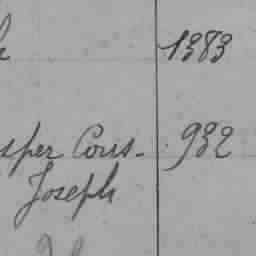 1383
sper Cons- 932
Joseph